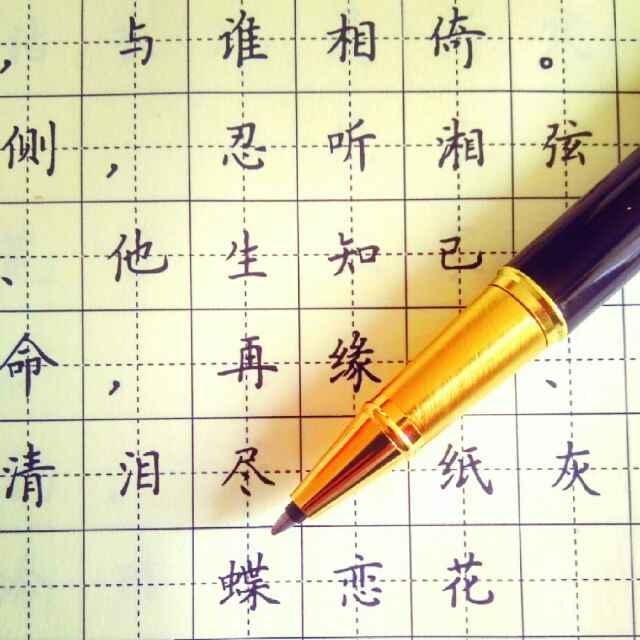 ，与谁相倚。
侧，忍听湘弦
、他生知己
命，再缘、
清泪尽 纸灰
蝶恋花